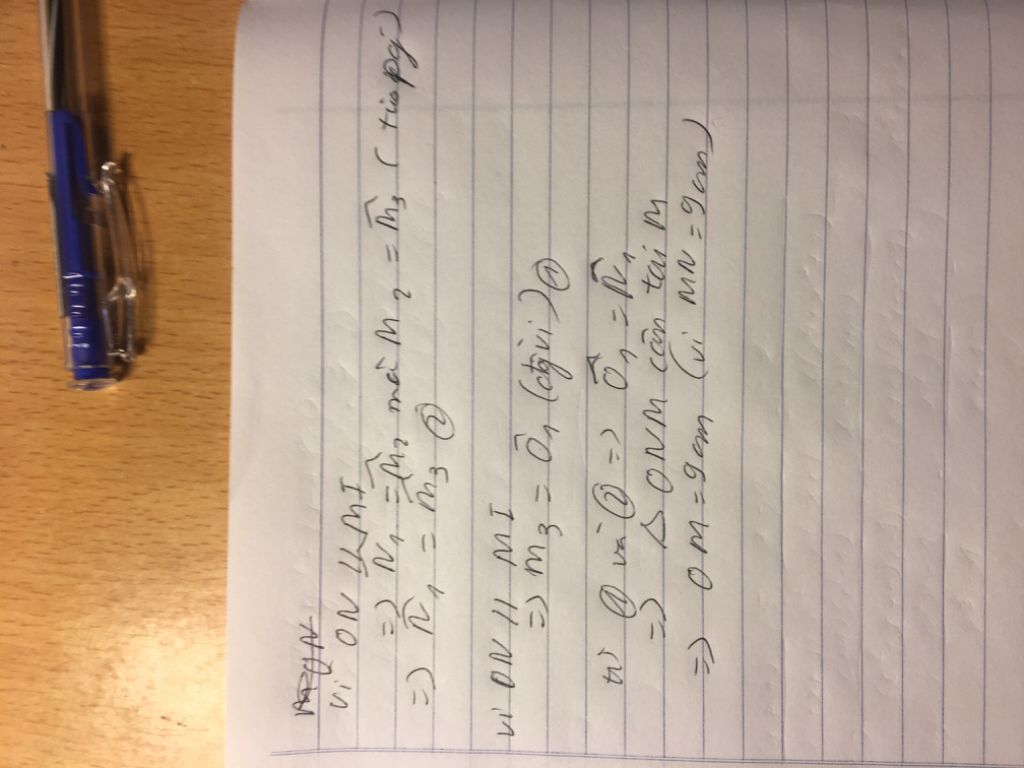 Vì ON // MI
=> N̂₁ = M̂₂ mà M₂ = M̂₃ ( tia pg)
=> N̂₁ = M̂₃ ②
Vì ON // MI
=> M₃ = Ô₁ (đồng vị) ①
từ ① và ② => Ô₁ = N̂₁
=> Δ ONM cân tại M
=> OM = 9cm (vì MN = 9cm)